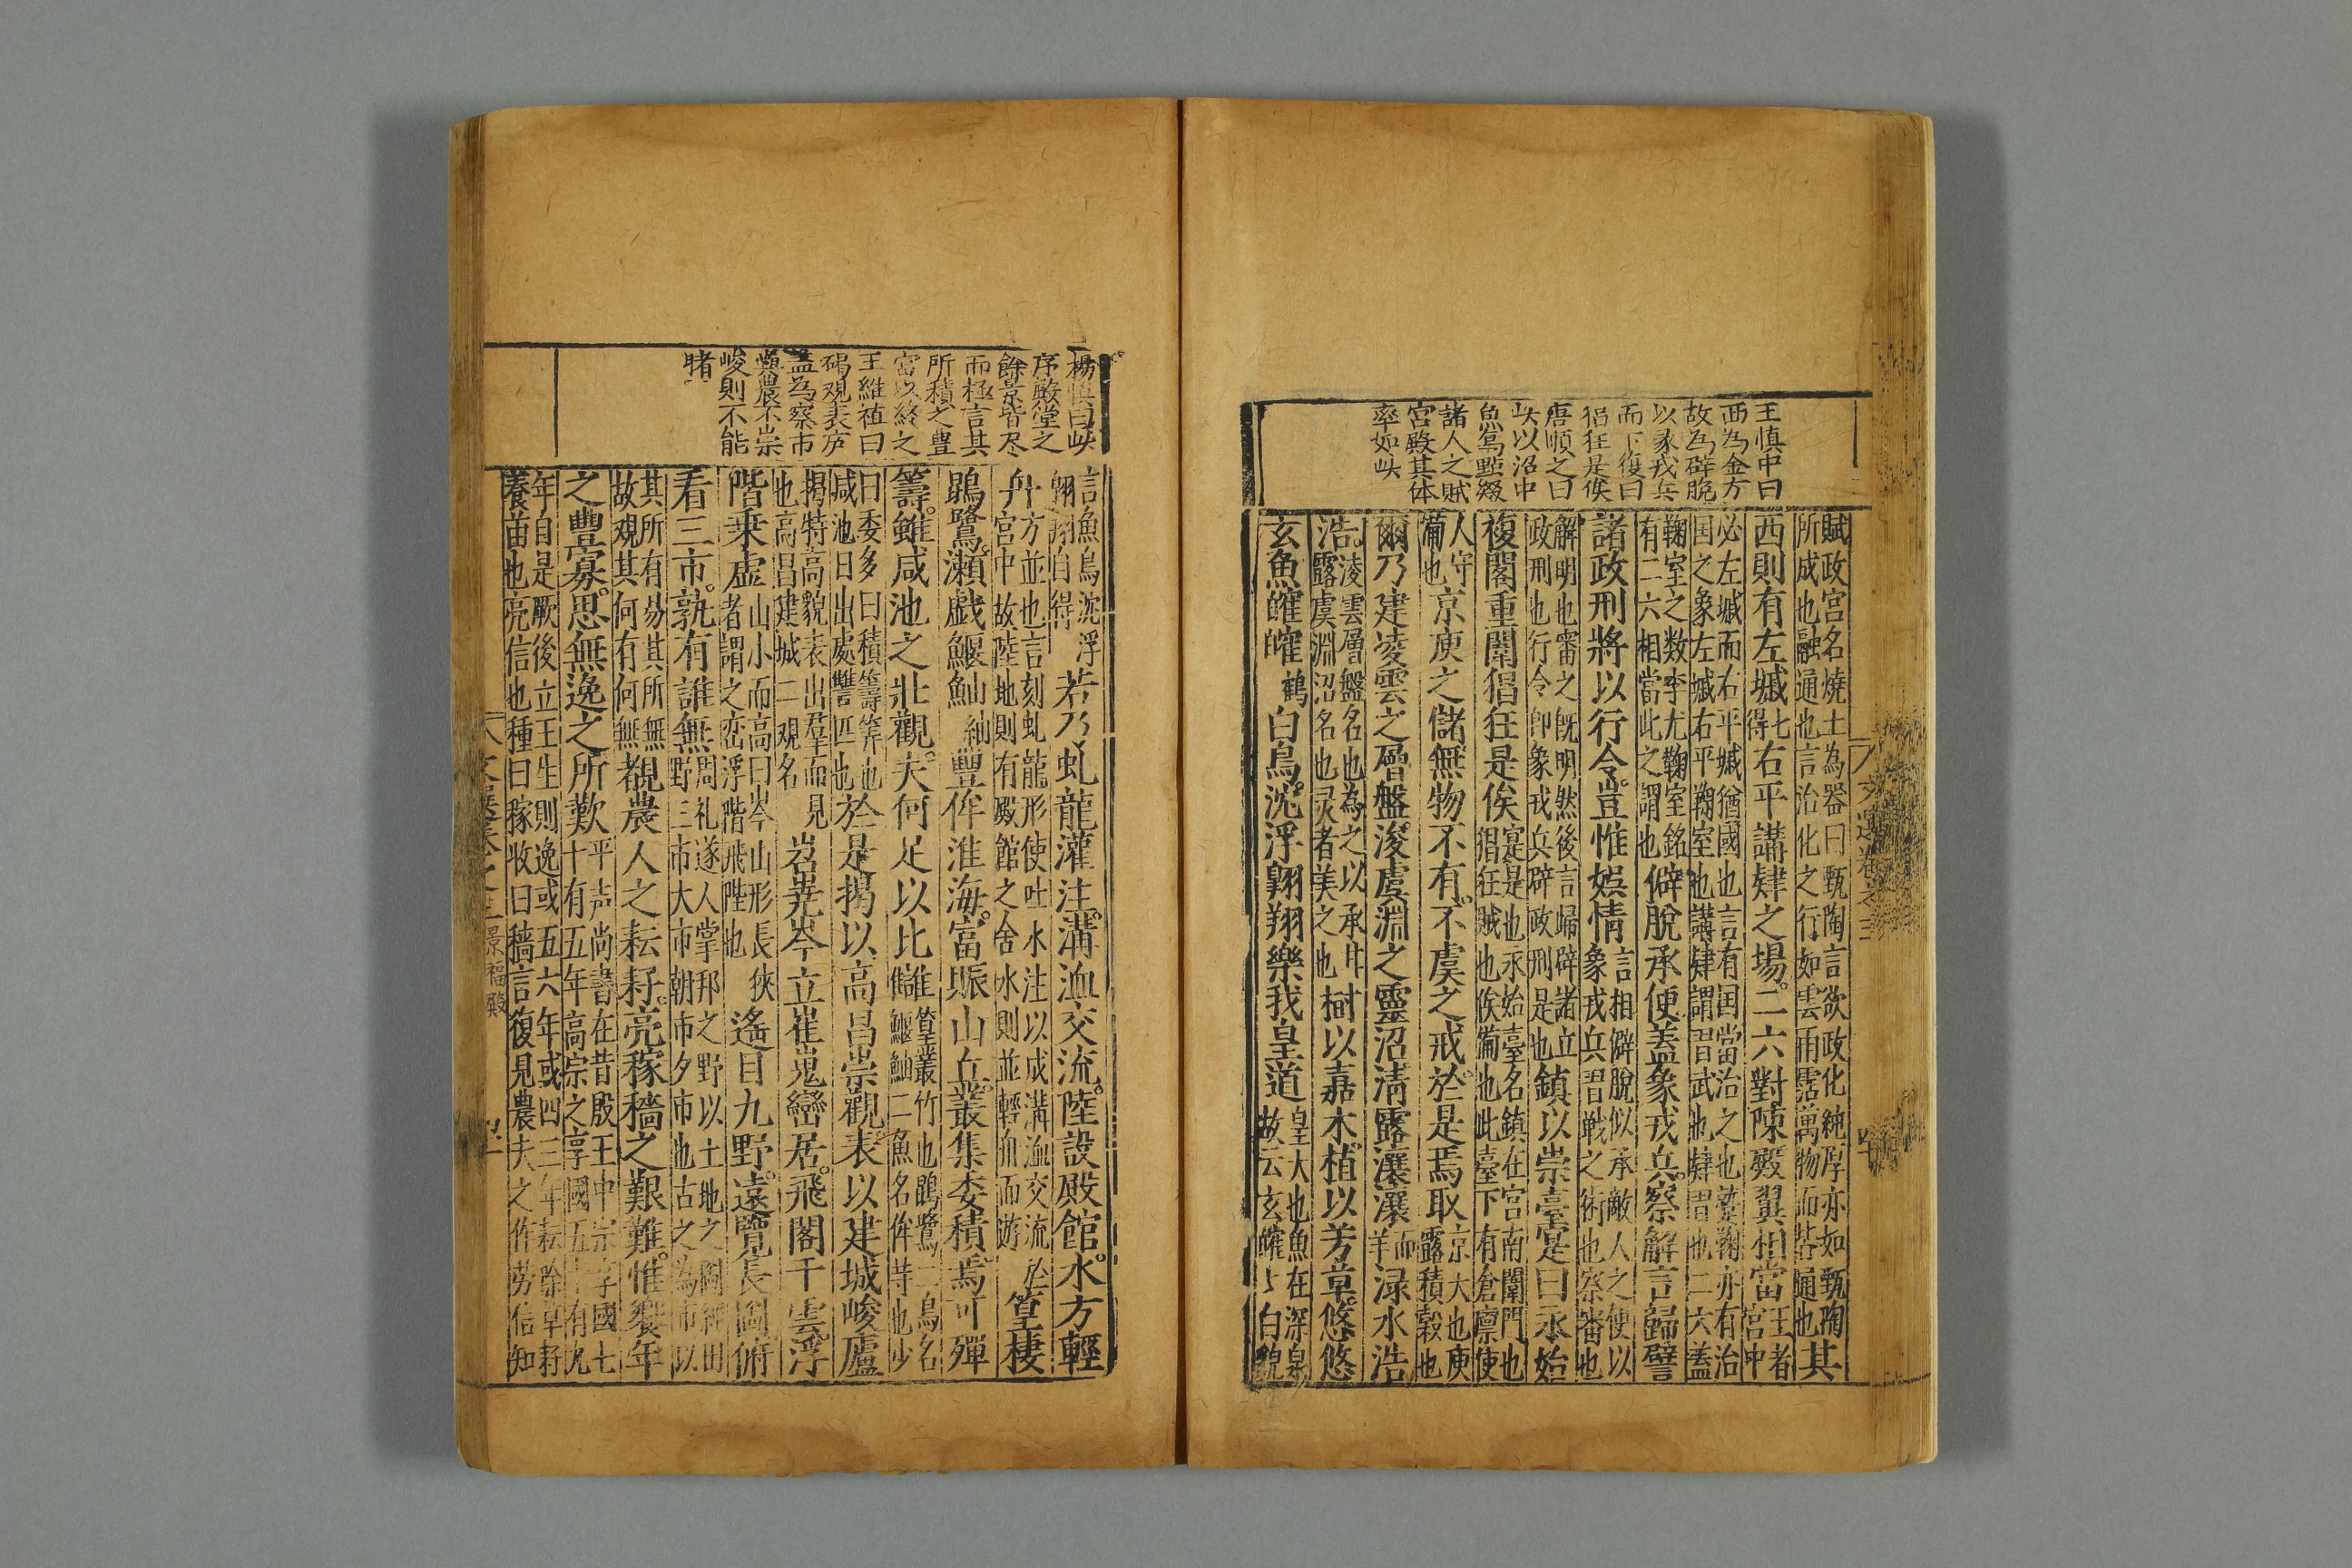 王慎中曰
西為金方
故為僻脫
以象戎兵
而下復曰
猖狂是俟
唐順之曰
此以沼中
魚鳥點綴
諸人之賦
宮殿其体
率如此
賦政宮名燒土為器曰甄陶言欲政化純厚亦如甄陶
所成也融通也言治化之行如雲雨霑萬物而甚通也其
西則有左墄七得右平講肄之場二六對陳殿翼相當王者宮中
必左墄而右平墄猶國也言有国當治之也蹵鞠亦有治
国之象左墄右平鞠室也講肄謂習武也肄習也二六蓋
鞠室之数李尤鞠室銘
有二六相當此之謂也僻脫承便蓋象戎兵察解言歸譬
諸政刑將以行令豈惟娛情言相僻脫似承敵人之便以
象戎兵習戰之術也察審也
解明也審之旣明然後言歸辟諸立
政刑也行令卽象戎兵辟政刑是也鎮以崇臺寔曰永始
複閣重闈猖狂是俟寔是也永始臺名鎮在宮南闈門也
猖狂賊也俟備也此臺下有倉廩使
人守
備也京庾之儲無物不有不虞之戒於是焉取京大也庾
露積穀也
爾乃建凌雲之層盤浚虞淵之靈沼清露瀼瀼而羊渌水浩
浩淩雲層盤名也為之以承甘
露虞淵沼名也灵者美之也樹以嘉木植以芳草悠悠
玄魚皠皠鶴白鳥沈浮翱翔樂我皇道皇大也魚在深泉
故云玄皠皠白貌
楊慎曰此
序殿堂之
餘景皆尽
而極言其
所積之豊
富以終之
王維禎曰
碣观表庐
蓋為察市
覩農不崇
峻則不能
睹
言魚鳥沈浮
翱翔自得若乃虬龍灌注溝洫交流陸設殿館水方輕
舟方並也言刻虬龍形使吐水注以成溝洫交流於
宮中故陸地則有殿館之舍水則並輕舟而游篁棲
鵾鷺瀨戯鰋鮋紬豐侔淮海富賑山丘叢集委積焉可殫
籌雖咸池之壯觀夫何足以比讎篁叢竹也鵾鷺二鳥名
鰋鮋二魚名侔等也少
曰委多曰積籌筭也
咸池日出處讐匹也於是揭以高昌崇觀表以建城峻廬
揭特高貌表出羣而見
也高昌建城二观名岧嶤岑立崔嵬巒居飛閣干雲浮
階乗虚山小而高曰岑山形長狹
者謂之峦浮階飛陛也遙目九野遠覽長圖俯
看三市孰有誰無周礼遂人掌邦之野以土地之圖經田
野三市大市朝市夕市也古之為市以
其所有易其所無
故观其何有何無覩農人之耘耔亮稼穡之艱難惟饗年
之豐寡思無逸之所歎平声尚書在昔殷王中宗享國七
十有五年高宗之享國五十有九
年自是厥後立王生則逸或五六年或四三年耘除草耔
養苗也亮信也種曰稼收曰穡言復見農夫之作勞信知
文選卷之三景福殿